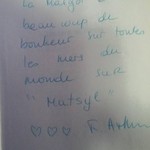 beaucoup de
bonheur sur toutes
les mers du
monde sur
"Matsyl"